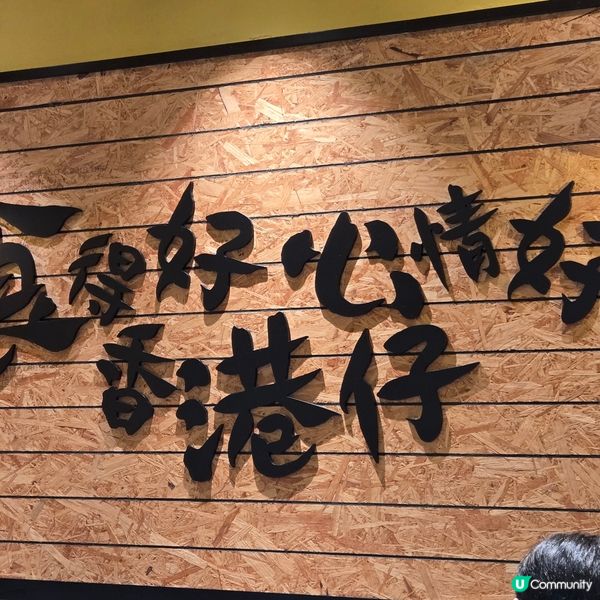 真得好心情好
香港仔
U Community